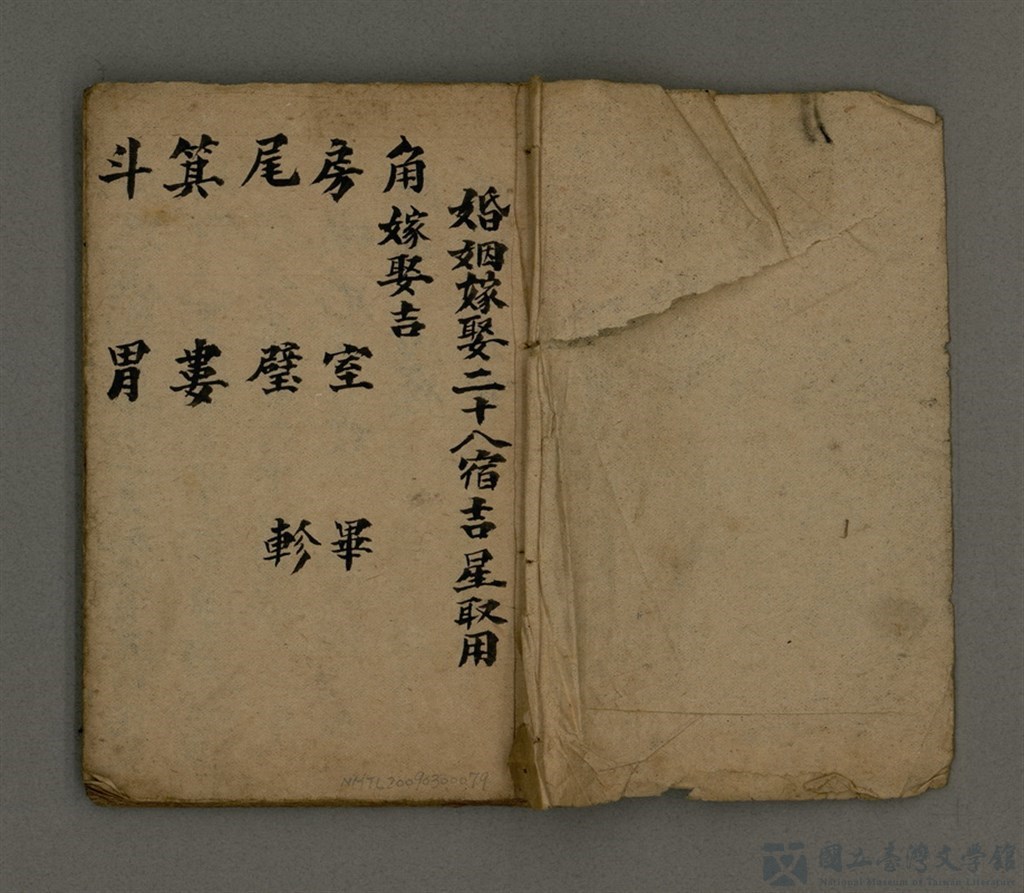 婚姻嫁娶二十八宿吉星取用
角 嫁娶吉
房 室 畢
尾 璧 軫
箕 婁
斗 胃
NMTL20090300079
國立臺灣文學館
National Museum of Taiwan Literature